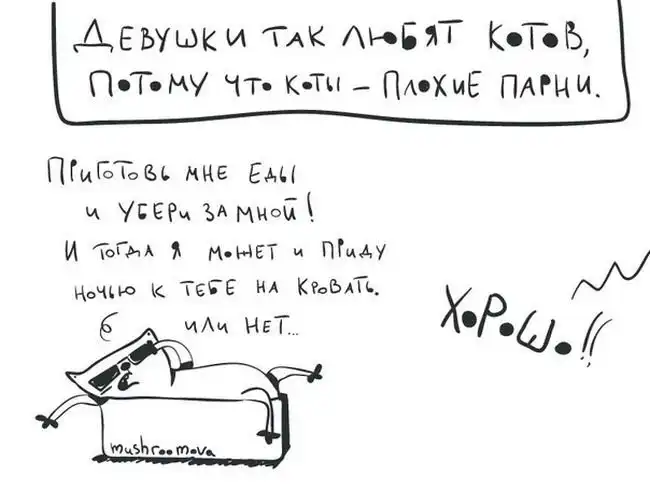 ДЕВУШКИ ТАК ЛЮБЯТ КОТОВ,
ПОТОМУ ЧТО КОТЫ – ПЛОХИЕ ПАРНИ.
ПРИГОТОВЬ МНЕ ЕДЫ
И УБЕРИ ЗА МНОЙ!
И ТОГДА Я МОЖЕТ И ПРИДУ
НОЧЬЮ К ТЕБЕ НА КРОВАТЬ.
ИЛИ НЕТ...
ХОРОШО!!
mushroomova